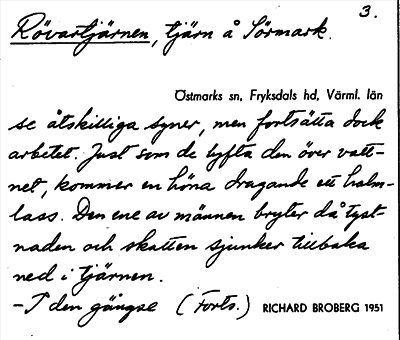 3.
Rövartjärnen, tjärn å Sörmark.
Östmarks sn, Fryksdals hd, Värml. län
se åtskilliga syner, men fortsätta dock
arbetet. Just som de lyfta den över vatt-
net, kommer en höna dragande ett halm-
lass. Den ene av männen bryter då tyst-
naden och skatten sjunker tillbaka
ned i tjärnen.
– I den gängse (Forts.) RICHARD BROBERG 1951